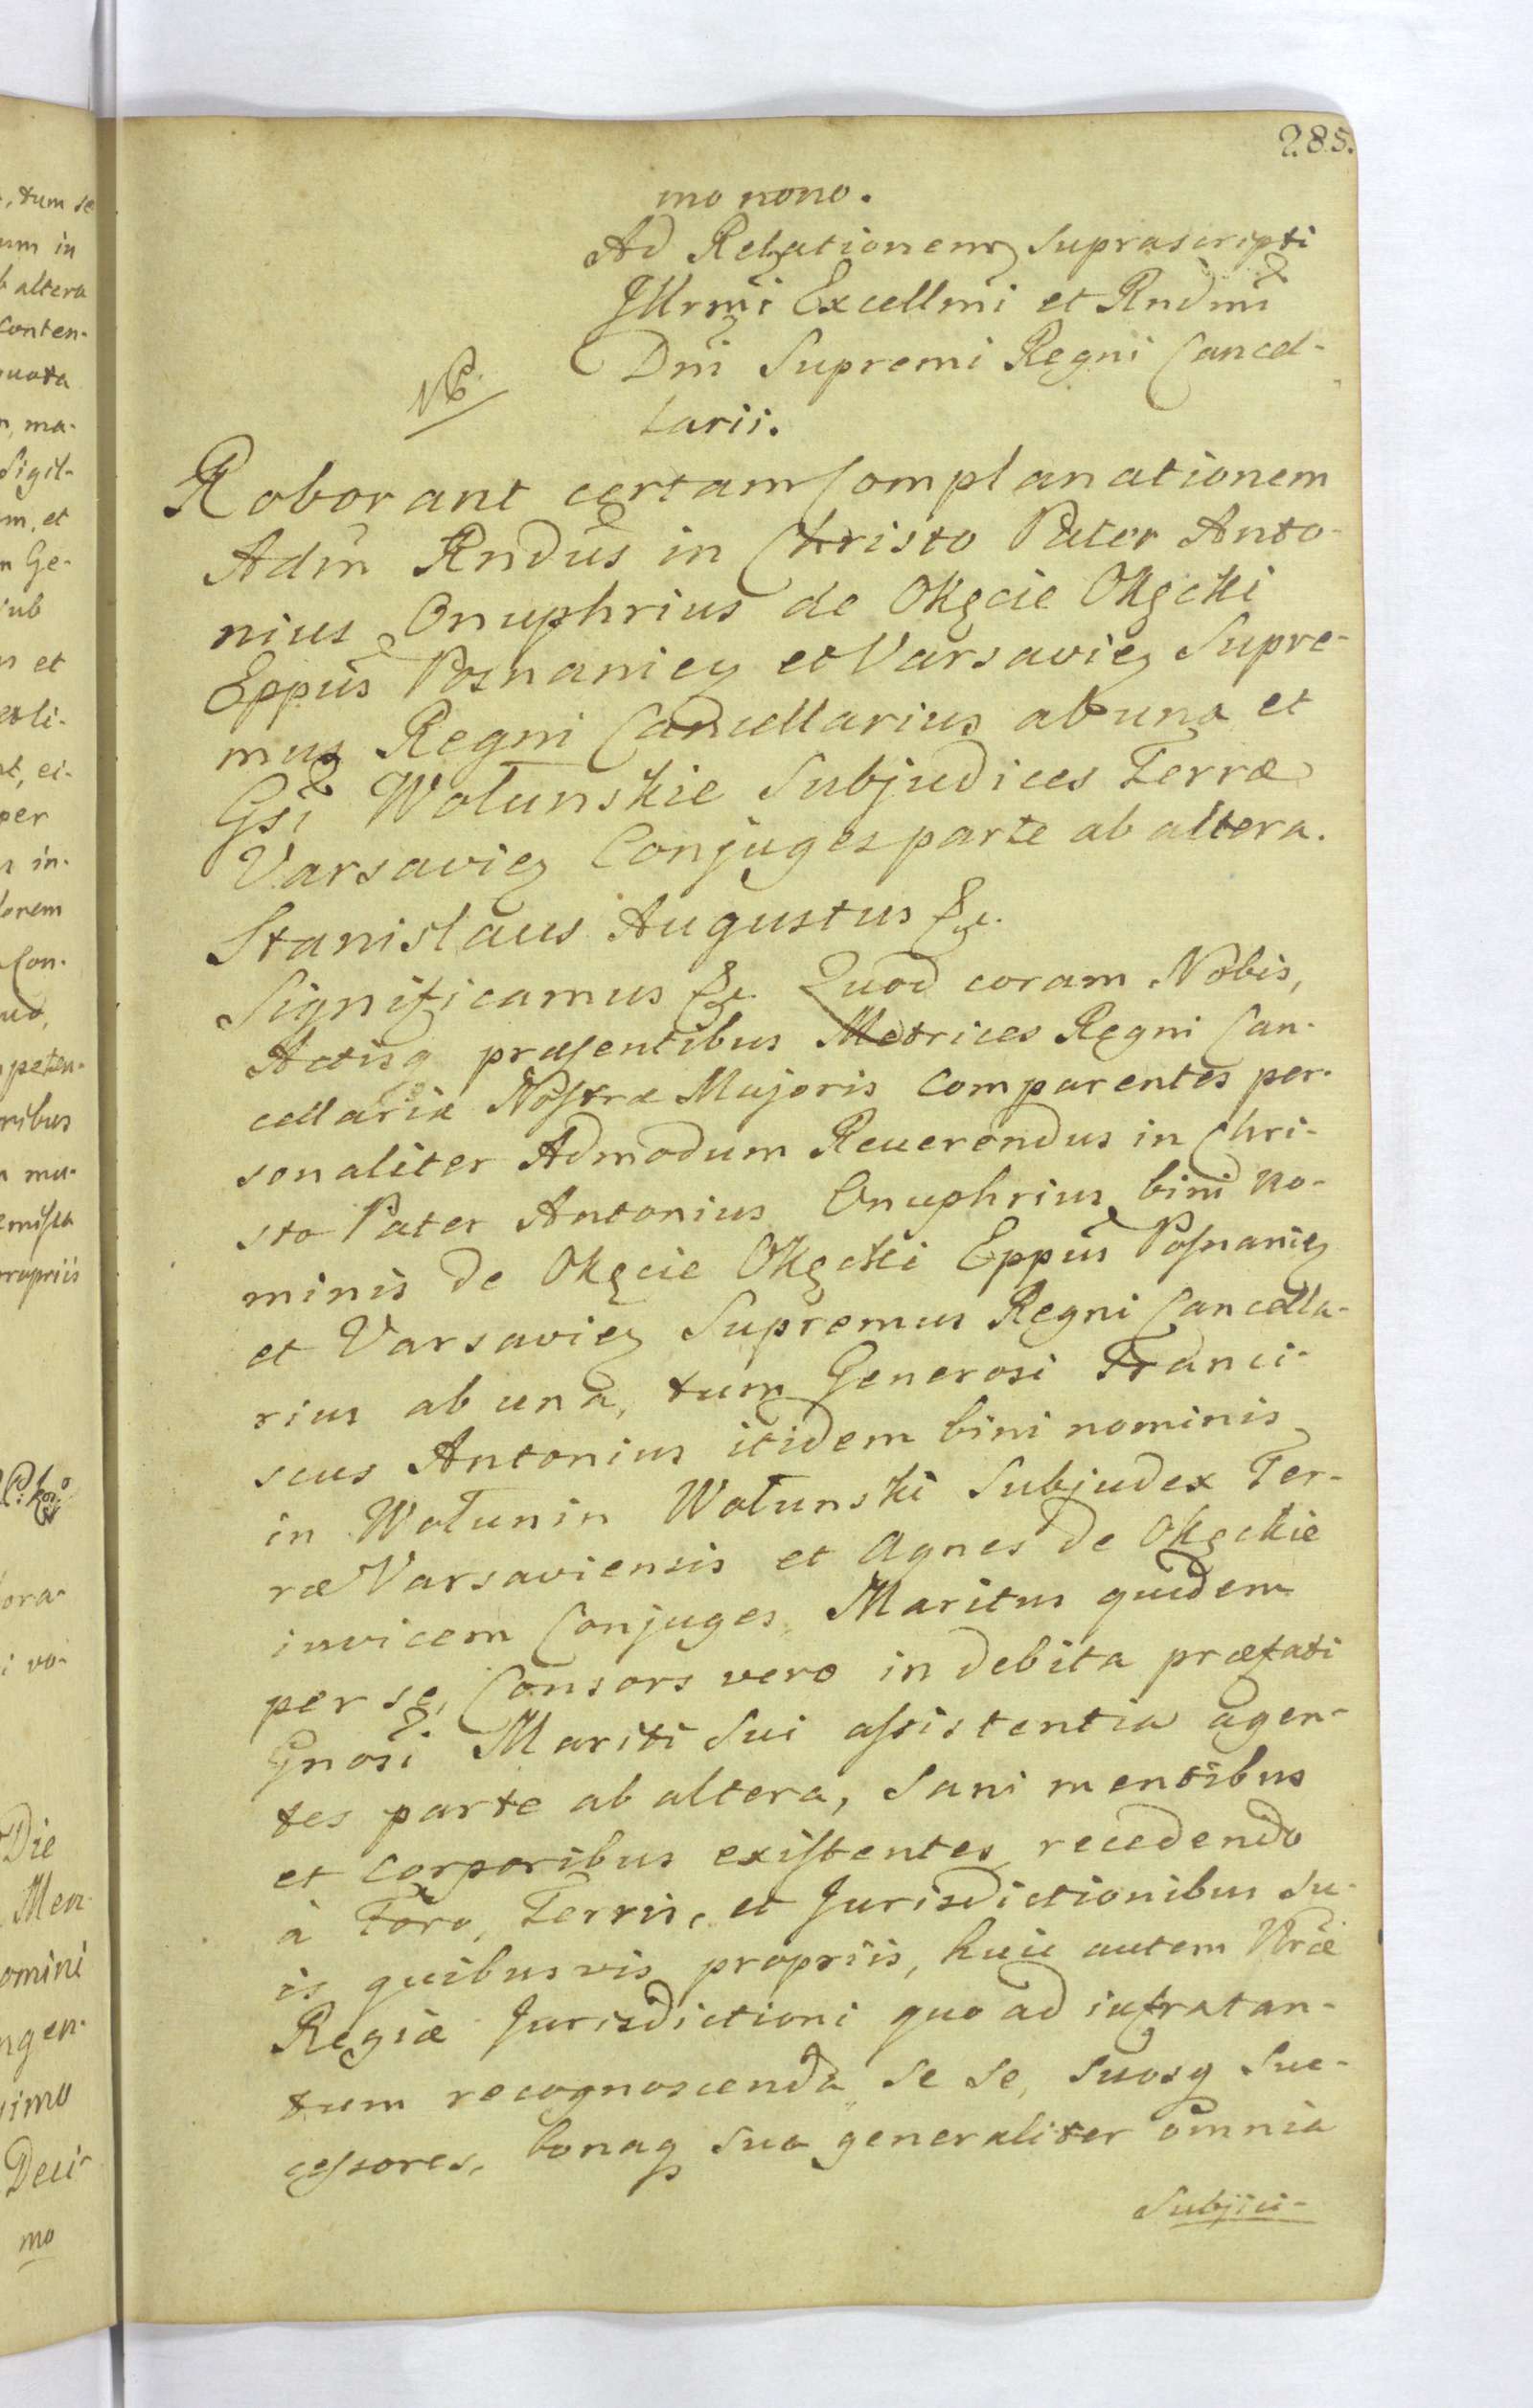 285.
mo nono.
Ad Relationem Suprascripti
Jllrmi Excellmi et Rndmi
Dni Supremi Regni Cancel-
larii.
NB
Roborant certam Complanationem
Adm Rndus in Christo Pater Anto-
nius Onuphrius de Okęcie Okęcki
Eppus Posnanien et Varsavien Supre-
mus Regni Cancellarius ab una et
Gsi Wolunskie Subjudices Terræ
Varsavien Conjuges parte ab altera.
Stanislaus Augustus &c.
Significamus &c. Quod coram Nobis,
Actisq præsentibus Metrices Regni Can-
cellariæ Nostræ Majoris Comparentes per-
sonaliter Admodum Reuerendus in Chri-
sto Pater Antonius Onuphrius bini no-
minis de Okęcie Okęcki Eppus Posnanien
et Varsavien Supremus Regni Cancella-
rius ab una, tum Generosi Franci-
scus Antonius itidem bini nominis
in Wołunin Wołunski Subjudex Ter-
ræ Varsaviensis et Agnes de Okęckie
invicem Conjuges, Maritus quidem
per se, Consors vero in debita præfati
Gnosi Mariti Sui assistentia agen-
tes parte ab altera, Sani mentibus
et corporibus existentes recedendo
à Foro, Terris, et Jurisdictionibus Su-
is quibusvis propriis, huic autem Nræ
Regiæ Jurisdictioni quo ad infra tan-
tum recognoscenda se se, Suosq Suc-
cessores, bonaq sua generaliter omnia
Subjici-